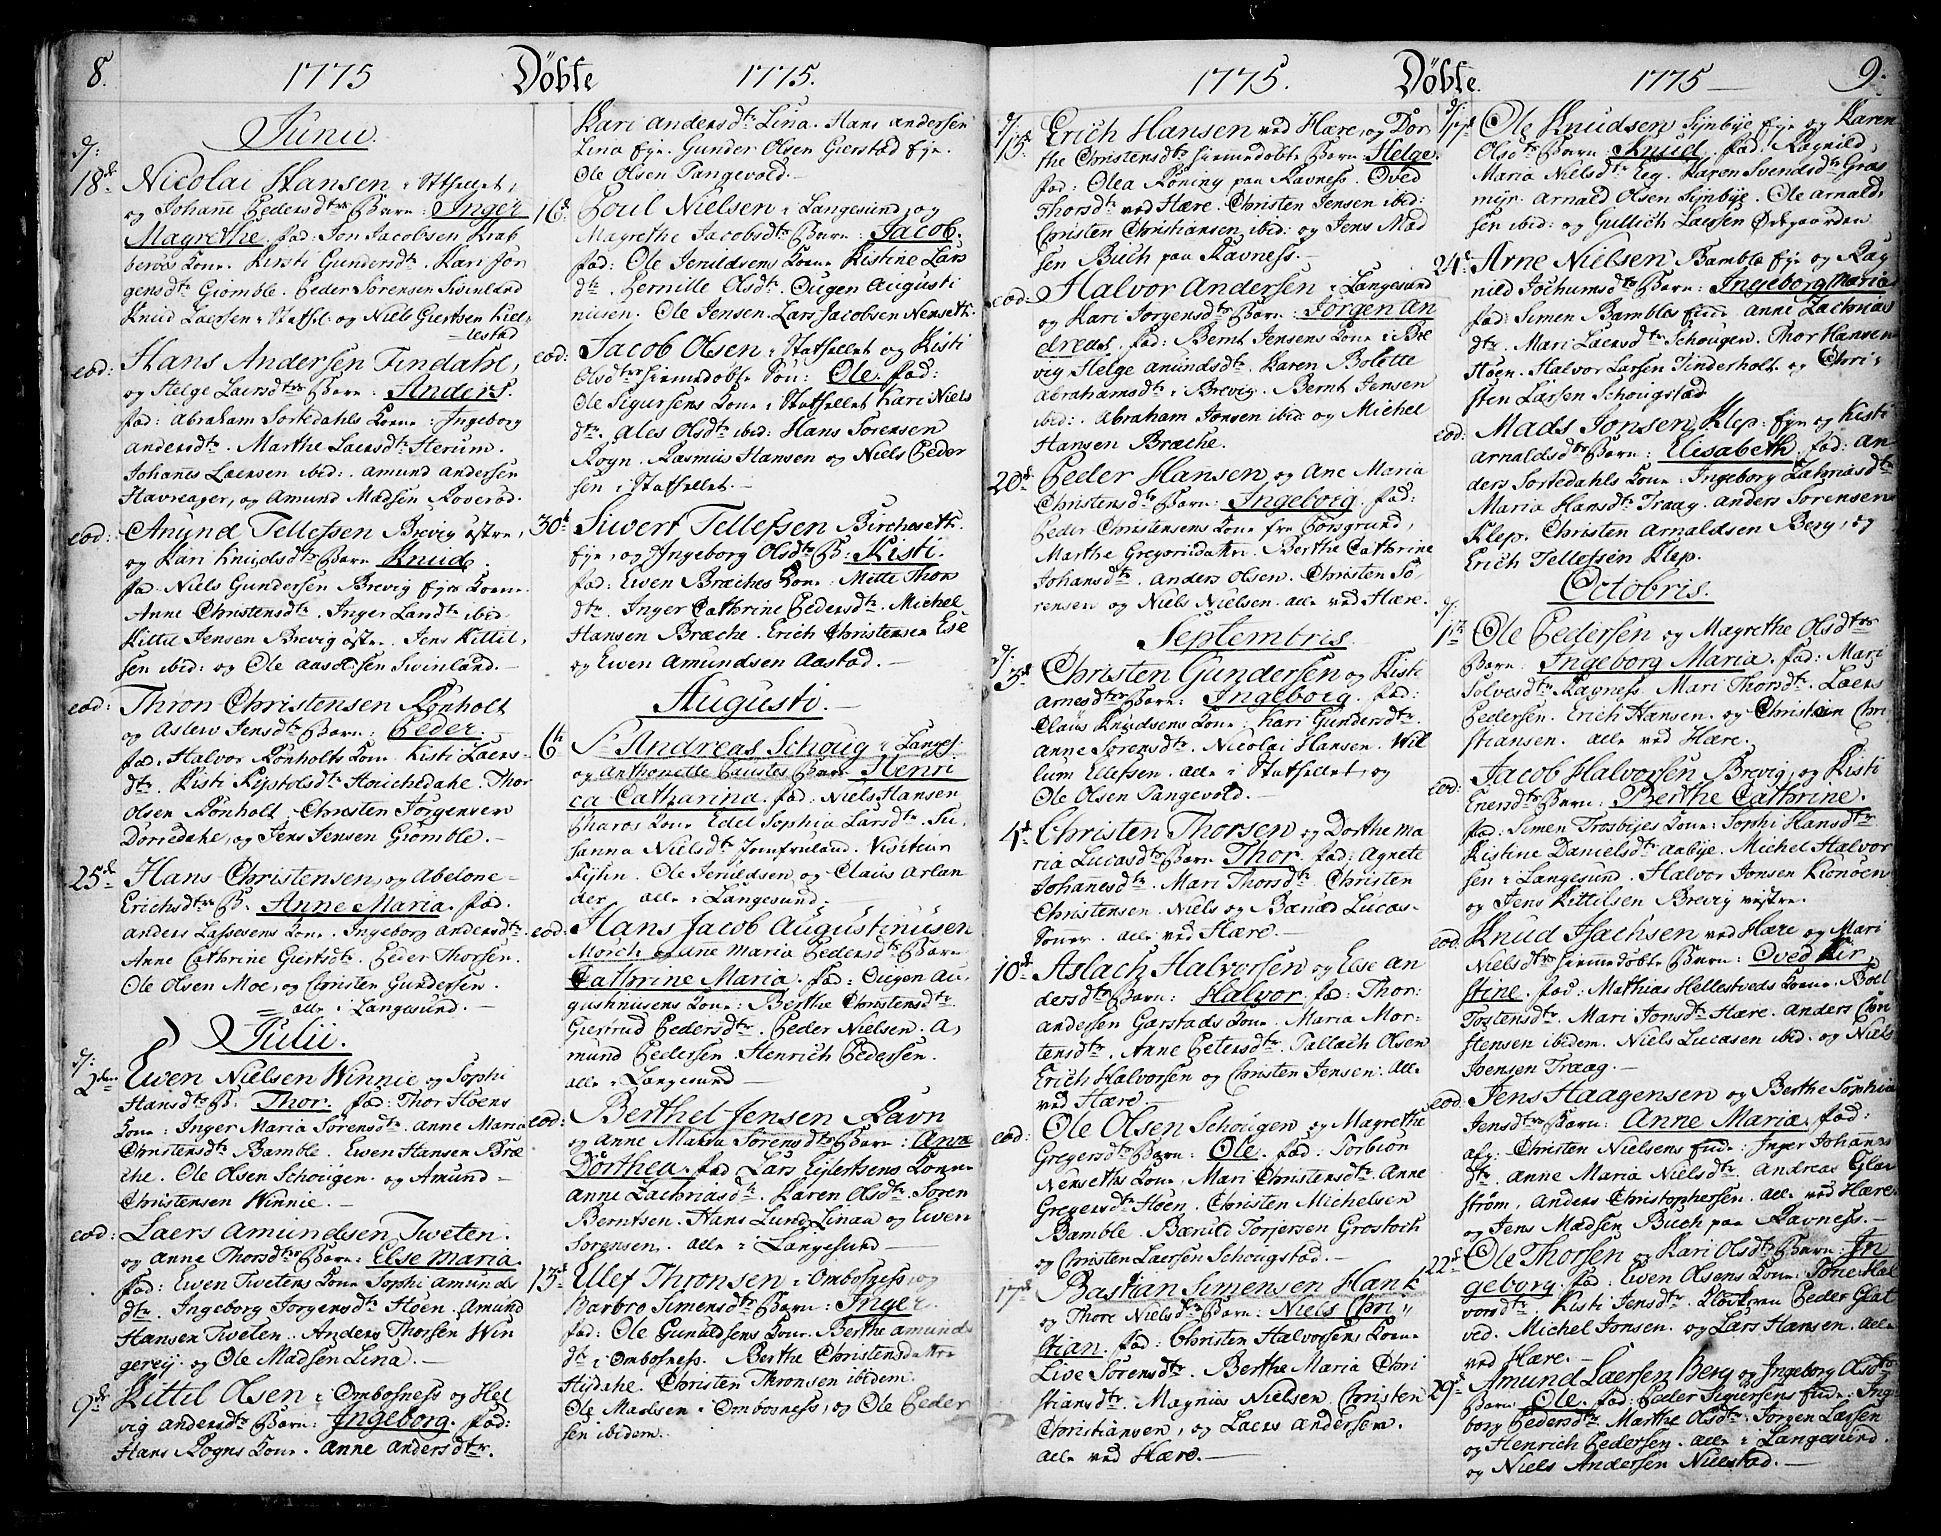 8.
1775 Döbte 1775.
Junii
d:
18d. Nicolai Hansen i Statfellet,
og Johane Pedersdtr Barn: Inger
Magrethe. fad: Jon Jacobsen Krab
beroes Kone. Kirsti Gundersdt. Kari Jør
gensdt. Giomble. Peder Sørensen Svinland
Knud Laersen i Statfel. og Niels Giertsen Kiel-
lestad
eod: Hans Andersen Findahl,
og Helge Laersdtr Barn: Anders.
fad: Abraham Sortedahls Kone. Ingeborg
andersdt. Marthe Laersdt. Herum.
Johanes Laersen ibid. amund andersen
Havreager, og Amund Madsen Roverod.
eod: Amund Tellefsen Brevig østre,
og Kari Knudsdtr Barn Knud.
fad. Niels Gundersen Brevig Eje Kone.
Anne Christensdt. Inger Landt ibid.
Kittil Jensen Brevig østre. Jens Kittil,
sen ibid: og Ole aasolsen Svinland.
eod: Thron Christensen Rønholt
og Aslew Jensdtr Barn: Peder.
fad: Halvor Rønholts Kone Kisti Laers-
dt. Kisti Kiestolsdt. Houchedahl. Thor
Olsen Rønholt. Christen Jørgensen
Dørredahl, og Jens Jensen Giomble.
25d. Hans Christensen og Abelone
Erichsdtr B. Anne Maria. fad.
anders Lassesens Kone. Ingeborg andersdt.
Anne Cathrine Giertsdt. Peder Thorsen.
Ole Olsen Moe, og Christen Gundersen.
alle i Langesund.
Julii.
d:
2den Ewen Nielsen Winnie og Sophi
Hansdtr B: Thor. fad: Thor Høens
Kone. Inger Maria Sørensdt. anne Maria
Christensdt. Bamble. Ewen Hansen Bræ
che. Ole Olsen Schougen. og Amund
Christensen Winnie.
eod: Laers Amundsen Tweten.
og Anne Thorsdtr Barn: Else Maria.
fad: Ewen Twetens Kone Sophi amunds
dt. Ingeborg Jørgensdt. Høen. Amund
Hansen Tweten. Anders Thorsen Win
gereij. og Ole Madsen Lina.
9d. Kittil Olsen i Ombosness og Hel
vig andersdtr Barn: Ingeborg. fad:
Hans Rogns Kone. Anne andersdtr.
Kari andersdt. Lina. Hans andersen
Lina Eje. Gunder Olsen Gierstad Eje.
Ole Olsen Tangevold.
16d. Poul Nielsen i Langesund, og
Magrethe Jacobsdtr Barn: Jacob.
fad: Ole Jeruldsens Kone Kistine Lars
dt. Pernille Olsdt. Ougen Augusti
nusen. Ole Jensen. Lars Jacobsen Nenseth.
eod: Jacob Olsen i Statfellet og Kisti
Olsdtr hiemmedobte Søn: Ole. fad:
Ole Sigursens Kone i Statfellet Kari Niels
dt. Ales Olsdt. ibid: Hans Sørensen
Rogn. Rasmus Hansen og Niels Peder
sen i Statfellet.
30d. Siwert Tellefsen Bircheseth.
Eje, og Ingeborg Olsdtr B: Kisti.
fad: Ewen Bræches Kone: Mitte Thon
dt. Inger Cathrine Pedersdt. Michel
Hansen Bræche. Erich Christensen Ese
og Ewen Amundsen Aastad.
Augusti.
6te Sr. Andreas Schoug i Langes.
og Anthonelle Faustes Barn Henri
ca Catharina. fad: Niels Hansen
Pharos Kone Edel Sophia Larsdt. Su,
sanna Nielsdt. Jomfruland. Visiteur
Fejhn. Ole Jeruldsen, og Claus Arlan
der. alle i Langesund.
eod. Hans Jacob Augustinusen
Morch og anne Maria Pedersdtr Barn
Cathrine Maria. fad: Ougen Au,
gustinusens Kone: Berthe Christensdt.
Giertrud Pedersdtr. Peder Nielsen. A,
mund Pedersen. Henrich Pedersen.
alle i Langesund
eod: Berthel Jensen Ravn
og Anne Maria Sørensdtr Barn: Anne
Dorthea. fad Lars Ejlertsens Kone
Anne Zachriasdt. Karen Olsdt. Søren
Berntsen. Hans Lund Linaa og Ewen
Sørensen. alle i Langesund
13d. Ellef Thronsen i Ombosness, og
Barbro Simensdtr Barn: Inger.
fad: Ole Gunuldsens Kone. Berthe amunds
dt. i Ombosness. Berthe Christensdatter
Hijdahl. Christen Thronsen ibidem.
Ole Madsen i Ombosness, og Ole Peder
sen ibidem.
1775. Döbte. 1775 9.
d/15d. Erich Hansen ved Hære, og Dor-
the Christensdtr hiemmedobte Barn: Helge.
fad: Olea Röning paa Ravness. Oved
Thorsdt. ved Hære. Christen Jensen ibid:
Christen Christiansen ibid: og Jens Mad
sen Buch paa Ravness.
eod: Halvor Andersen i Langesund
og Kari Jorgensdtr Barn: Jorgen An
dreas. fad: Bernt Jensens Kone i Bre
vig Helge amundsdt. Karen Bolette
Abrahamsdt. i Brevig. Bernt Jensen
ibid: Abraham Jonsen ibid og Michel
Hansen Bræche.
20d. Peder Hansen og Ane Maria
Christensdtr Barn: Ingeborg. fad:
Peder Christensens Kone fra Porsgrund,
Marthe Gregoriidatter. Berthe Cathrine
Johansdt. Anders Olsen. Christen Sø,
rensen og Niels Nielsen. alle ved Hære.
Septembris.
d/3d. Christen Gundersen og Kisti
Arnesdtr Barn: Ingeborg. fad:
Claus Knudsens Kone: Kari Gundersdt.
Anne Sørensdt. Nicolai Hansen. Wil
lum Ellefsen. alle i Statfellet, og
Ole Olsen Tangevold.
4d. Christen Thorsen og Dorthe Ma
ria Lucasdtr Barn Thor. fad: Agnete
Johannesdt. Mari Thorsdt. Christen
Christensen. Niels og Baruld Lucas-
Sønner. alle ved Hære.
10d. Aslach Halvorsen og Else An
dersdtr Barn: Halvor. fad: Thor
andersen Garstads Kone. Maria Mor-
tensdt. Anne Petersdt. Tallach Olsen
Erich Halvorsen og Christen Jensen. alle
ved Hære.
eod: Ole Olsen Schougen og Magrethe
Gregersdtr Barn: Ole. fad: Torbion
Nenseths Kone, Mari Christensdt. Anne
Gregersdt. Høen. Christen Michelsen
Bamble. Baruld Torjersen Grostoch
og Christen Laersen Schougstad.
17d. Bastian Simensen Hank
og Thore Nielsdtr Barn: Niels Chri,,
stian. fad: Christen Halvorsens Kone
Live Sørensdt. Berthe Maria Chri
stiansdt. Magnus Nielsen. Christen
Christiansen, og Laers Andersen.
alle ved Hære.
d/17d. Ole Knudsen Sijnbije Eje og Karen
Olsdtr Barn Knud. fad: Ragnild,
Maria Nielsdt. Eeg. Karen Svendsdt. Gras
mijr. Arnold Olsen Sijnbije. Ole Arnold,
sen ibid: og Gullich Laersen Østgaarden
24d. Arne Nielsen Bamble Eje og Rag
nild Jochumsdtr Barn: Ingeborg Maria
fad: Simen Bambles Enke anne Zachrias
dt. Mari Laersdt. Schougen. Thor Hansen
Høen. Halvor Larsen Tinderholt og Chri,
sten Larsen Schougstad.
eod: Mads Jonsen Klep. Eje og Kisti
Arnoldsdtr Barn: Elisabeth. fad: An
ders Sortedahls Kone Ingeborg Zachriasdtr
Maria Hansdt. Traag. Anders Sørensen
Klep. Christen Arnoldsen Berg, og
Erich Tellefsen Klep.
Octobris.
d/1te Ole Pedersen og Magrethe Olsdtr
Barn: Ingeborg Maria. fad: Mari
Solvesdtr Ragness. Mari Thorsdt. Laers
Pedersen. Erich Hansen. og Christen Chri
stiansen. alle ved Hære.
eod: Jacob Halvorsen Brevig, og Kisti
Enersdtr Barn: Berthe Cathrine.
fad. Simen Trosbijes Kone: Sophi Hansdtr
Kistine Danielsdt. Aabije. Michel Halvor
sen i Langesund. Halvor Jonsen Kionøen
og Jens Kittilsen Brevig vestre.
eod. Knud Isachsen ved Hære og Mari
Nielsdtr hiemmedøbte Barn: Oved Kir,
stine. fad: Mathias Hellestveds Kone. Boel
Tostensdt. Mari Jonsdt. Hære. Anders Chri
stensen ibidem. Niels Lucasen ibid. og Niels
Joensen Traag.
eod. Jens Haagensen og Berthe Sophia
Jensdtr Barn: Anne Maria. fad:
afg. Christen Nielsens Enke: Inger Johannes
dt. Anne Maria Nielsdt. Andreas Glas
strøm, Anders Christophersen. alle ved Hære
og Jens Madsen Buch paa Ravness.
22d. Ole Thorsen og Kari Olsdtr Barn: In
geborg. fad: Ewen Olsens Kone: Tone Hal
vorsdt. Kisti Jensdt. Peder Glat
ved. Michel Jonsen. og Lars Hansen. alle
ved Hære.
29d. Amund Laersen Berg og Ingeborg Olsdtr
Barn: Ole. fad: Peder Sigursens Enke: Inge
borg Pedersdt. Marthe Olsdt. Jørgen Larsen
og Henrich Pedersen. alle i Langesund.
og Niels Andersen Nielstad.